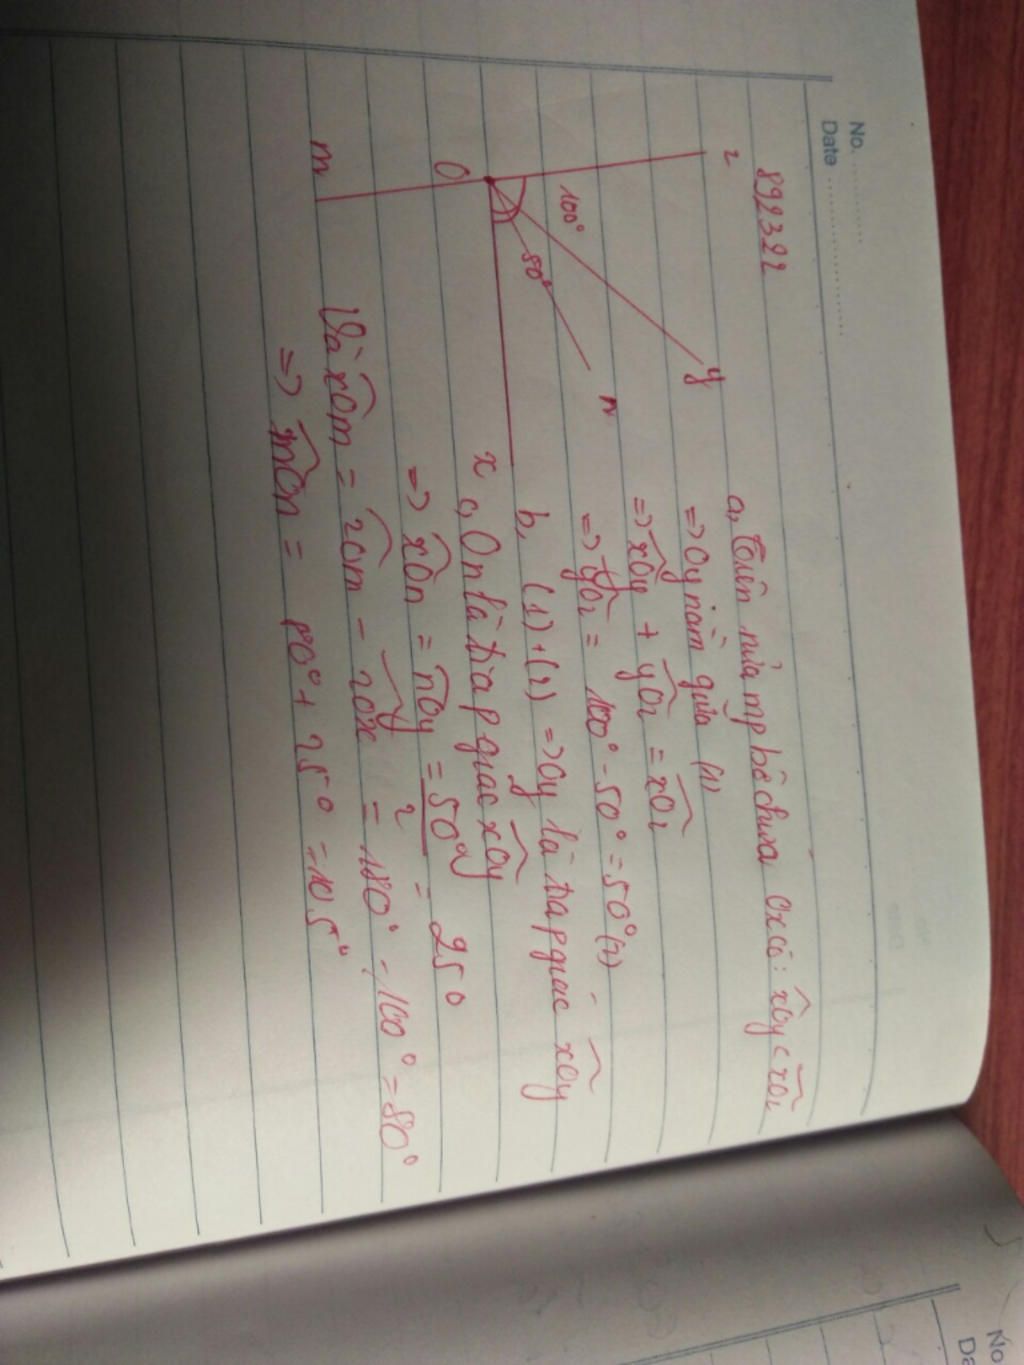 No.
Date
892322
z
y
n
100°
50°
O
x
m
a, Trên nửa mp bờ chứa Ox có: xOy < xOz
=> Oy nằm giữa (1)
=> xOy + yOz = xOz
=> yOz = 100° - 50° = 50° (2)
b, (1) + (2) => Oy là tia p giác xOy
c, On là tia p giác xOy
=> xOn = nOy = 50°/2 = 25°
Và xOm = zOm - zOx = 180° - 100° = 80°
=> mOn = 80° + 25° = 105°
No
Da